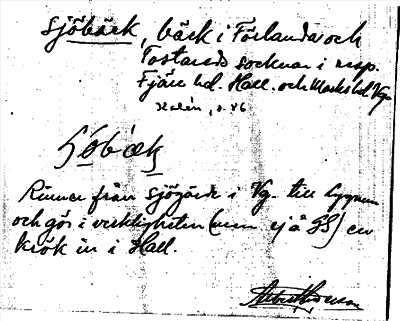 sjöbäck, bäck i Förlanda och
Tostareds socknar i resp.
Fjäre hd. Hall. och Marks hd. Vg.
Kalén, s. 46
Rinner från sjögärde i Vg. till Lygnern
och gör i verkligheten (men ej å GS) en
krök in i Hall.